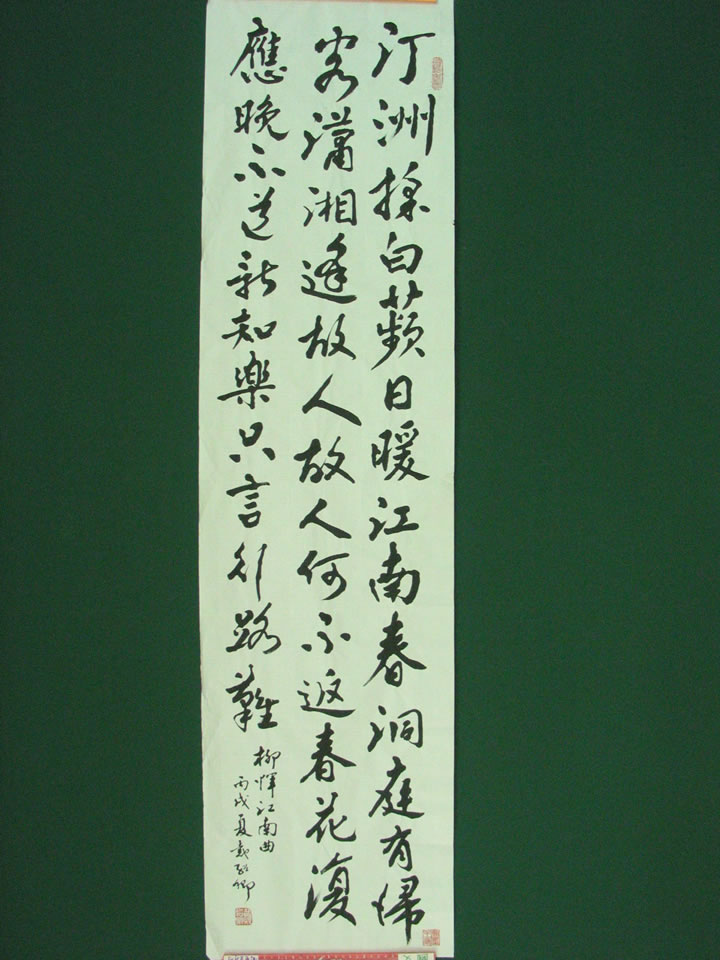 汀洲採白蘋日暖江南春洞庭有歸
客瀟湘逢故人故人何不返春花復
應晚不道新知樂只言行路難
柳惲江南曲
丙戌夏戴